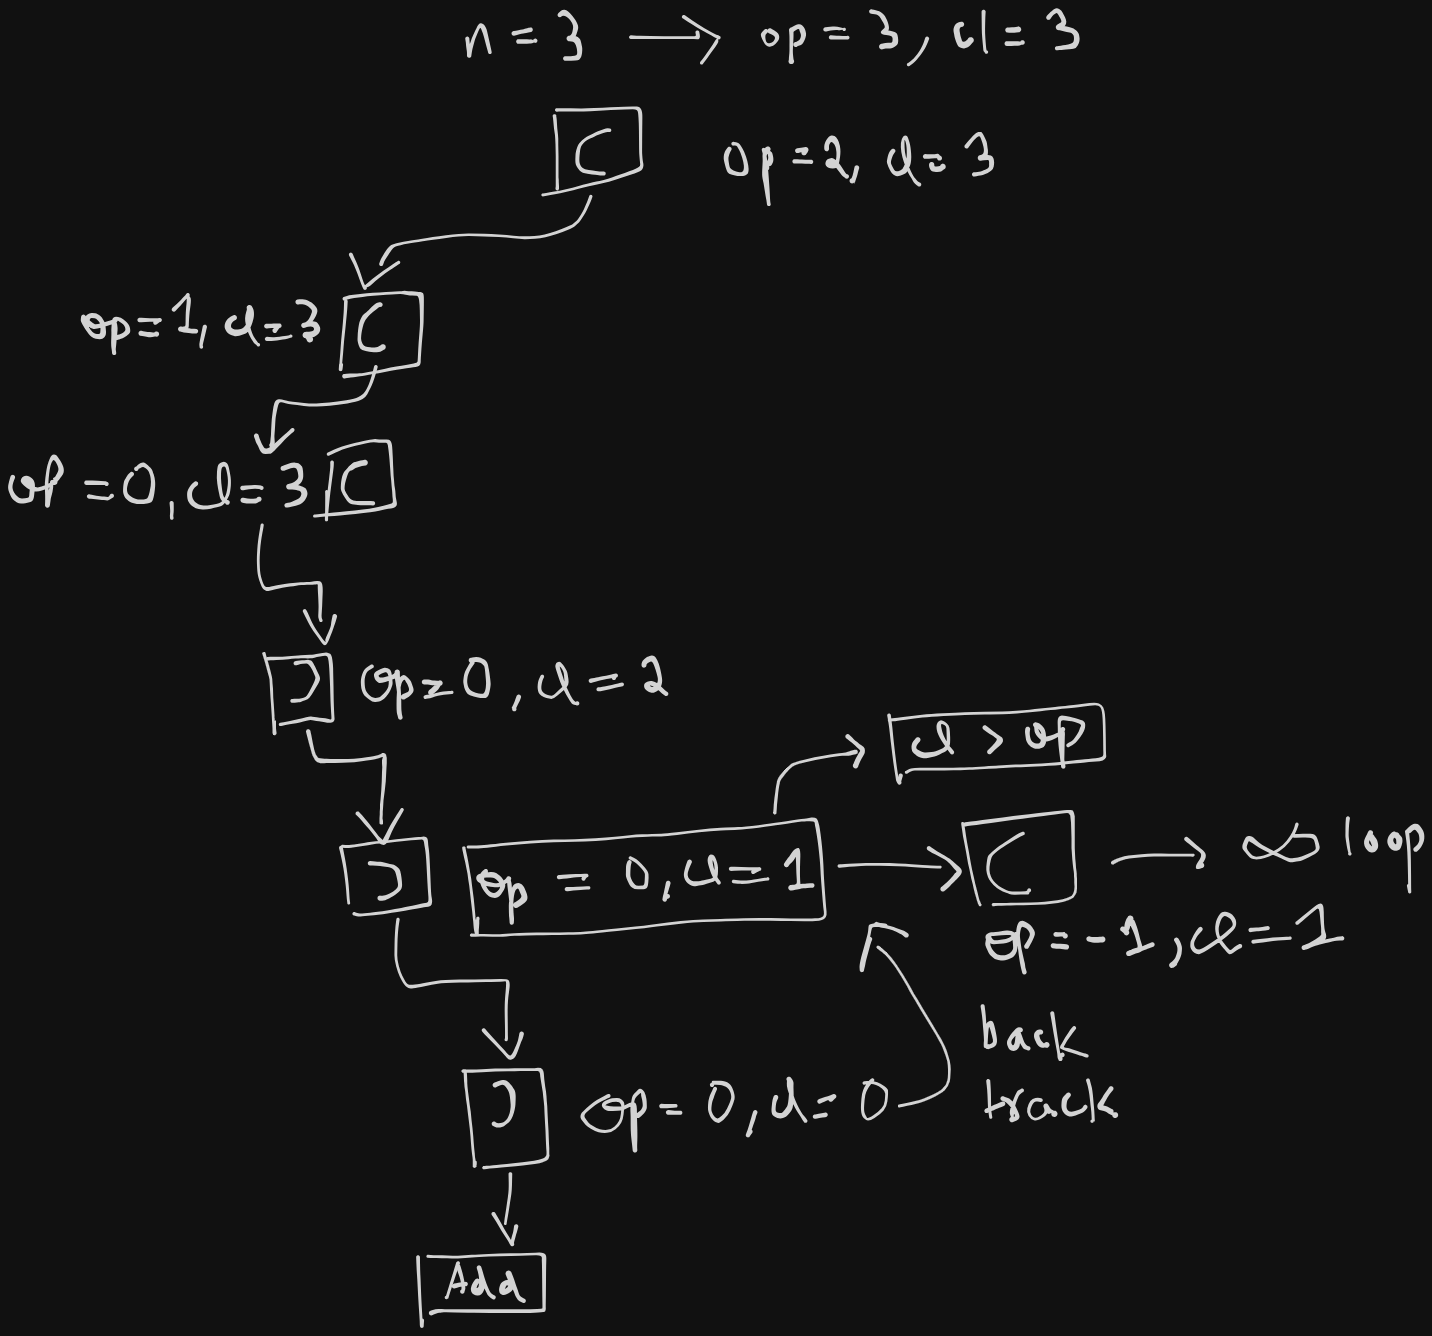 n = 3 → op = 3, cl = 3
( op = 2, cl = 3
op = 1, cl = 3 (
op = 0, cl = 3 (
) op = 0, cl = 2
cl > op
) op = 0, cl = 1 → ( → ∞ loop
op = -1, cl = 1
back
track
) op = 0, cl = 0
Add